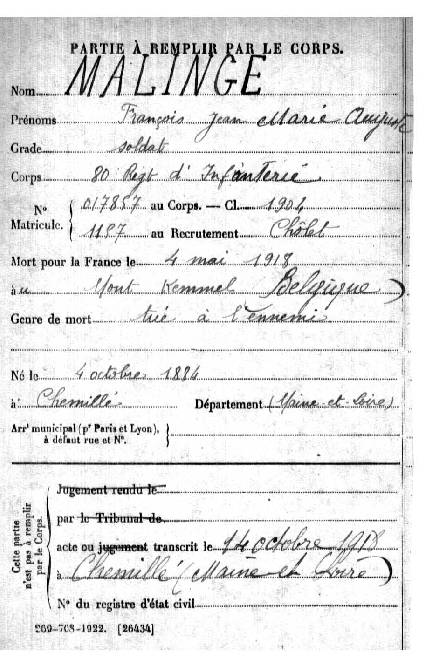 PARTIE À REMPLIR PAR LE CORPS.
Nom MALINGE
Prénoms François Jean Marie Auguste
Grade soldat
Corps 80 Regt d'Infanterie
N° Matricule. { 017857 au Corps. — Cl. 1904
1197 au Recrutement Chôlet
Mort pour la France le 4 mai 1918
à au Mont Kemmel Belgique)
Genre de mort tué à l'ennemi
Né le 4 octobre 1884
à Chemillé Département (Maine-et-Loire)
Arrt municipal (pr Paris et Lyon), à défaut rue et N°. }
Cette partie n'est pas à remplir par le Corps.
Jugement rendu le
par le Tribunal de
acte ou jugement transcrit le 14 octobre 1918
à Chemillé (Maine et Loire)
N° du registre d'état civil
269-708-1922. [26434]